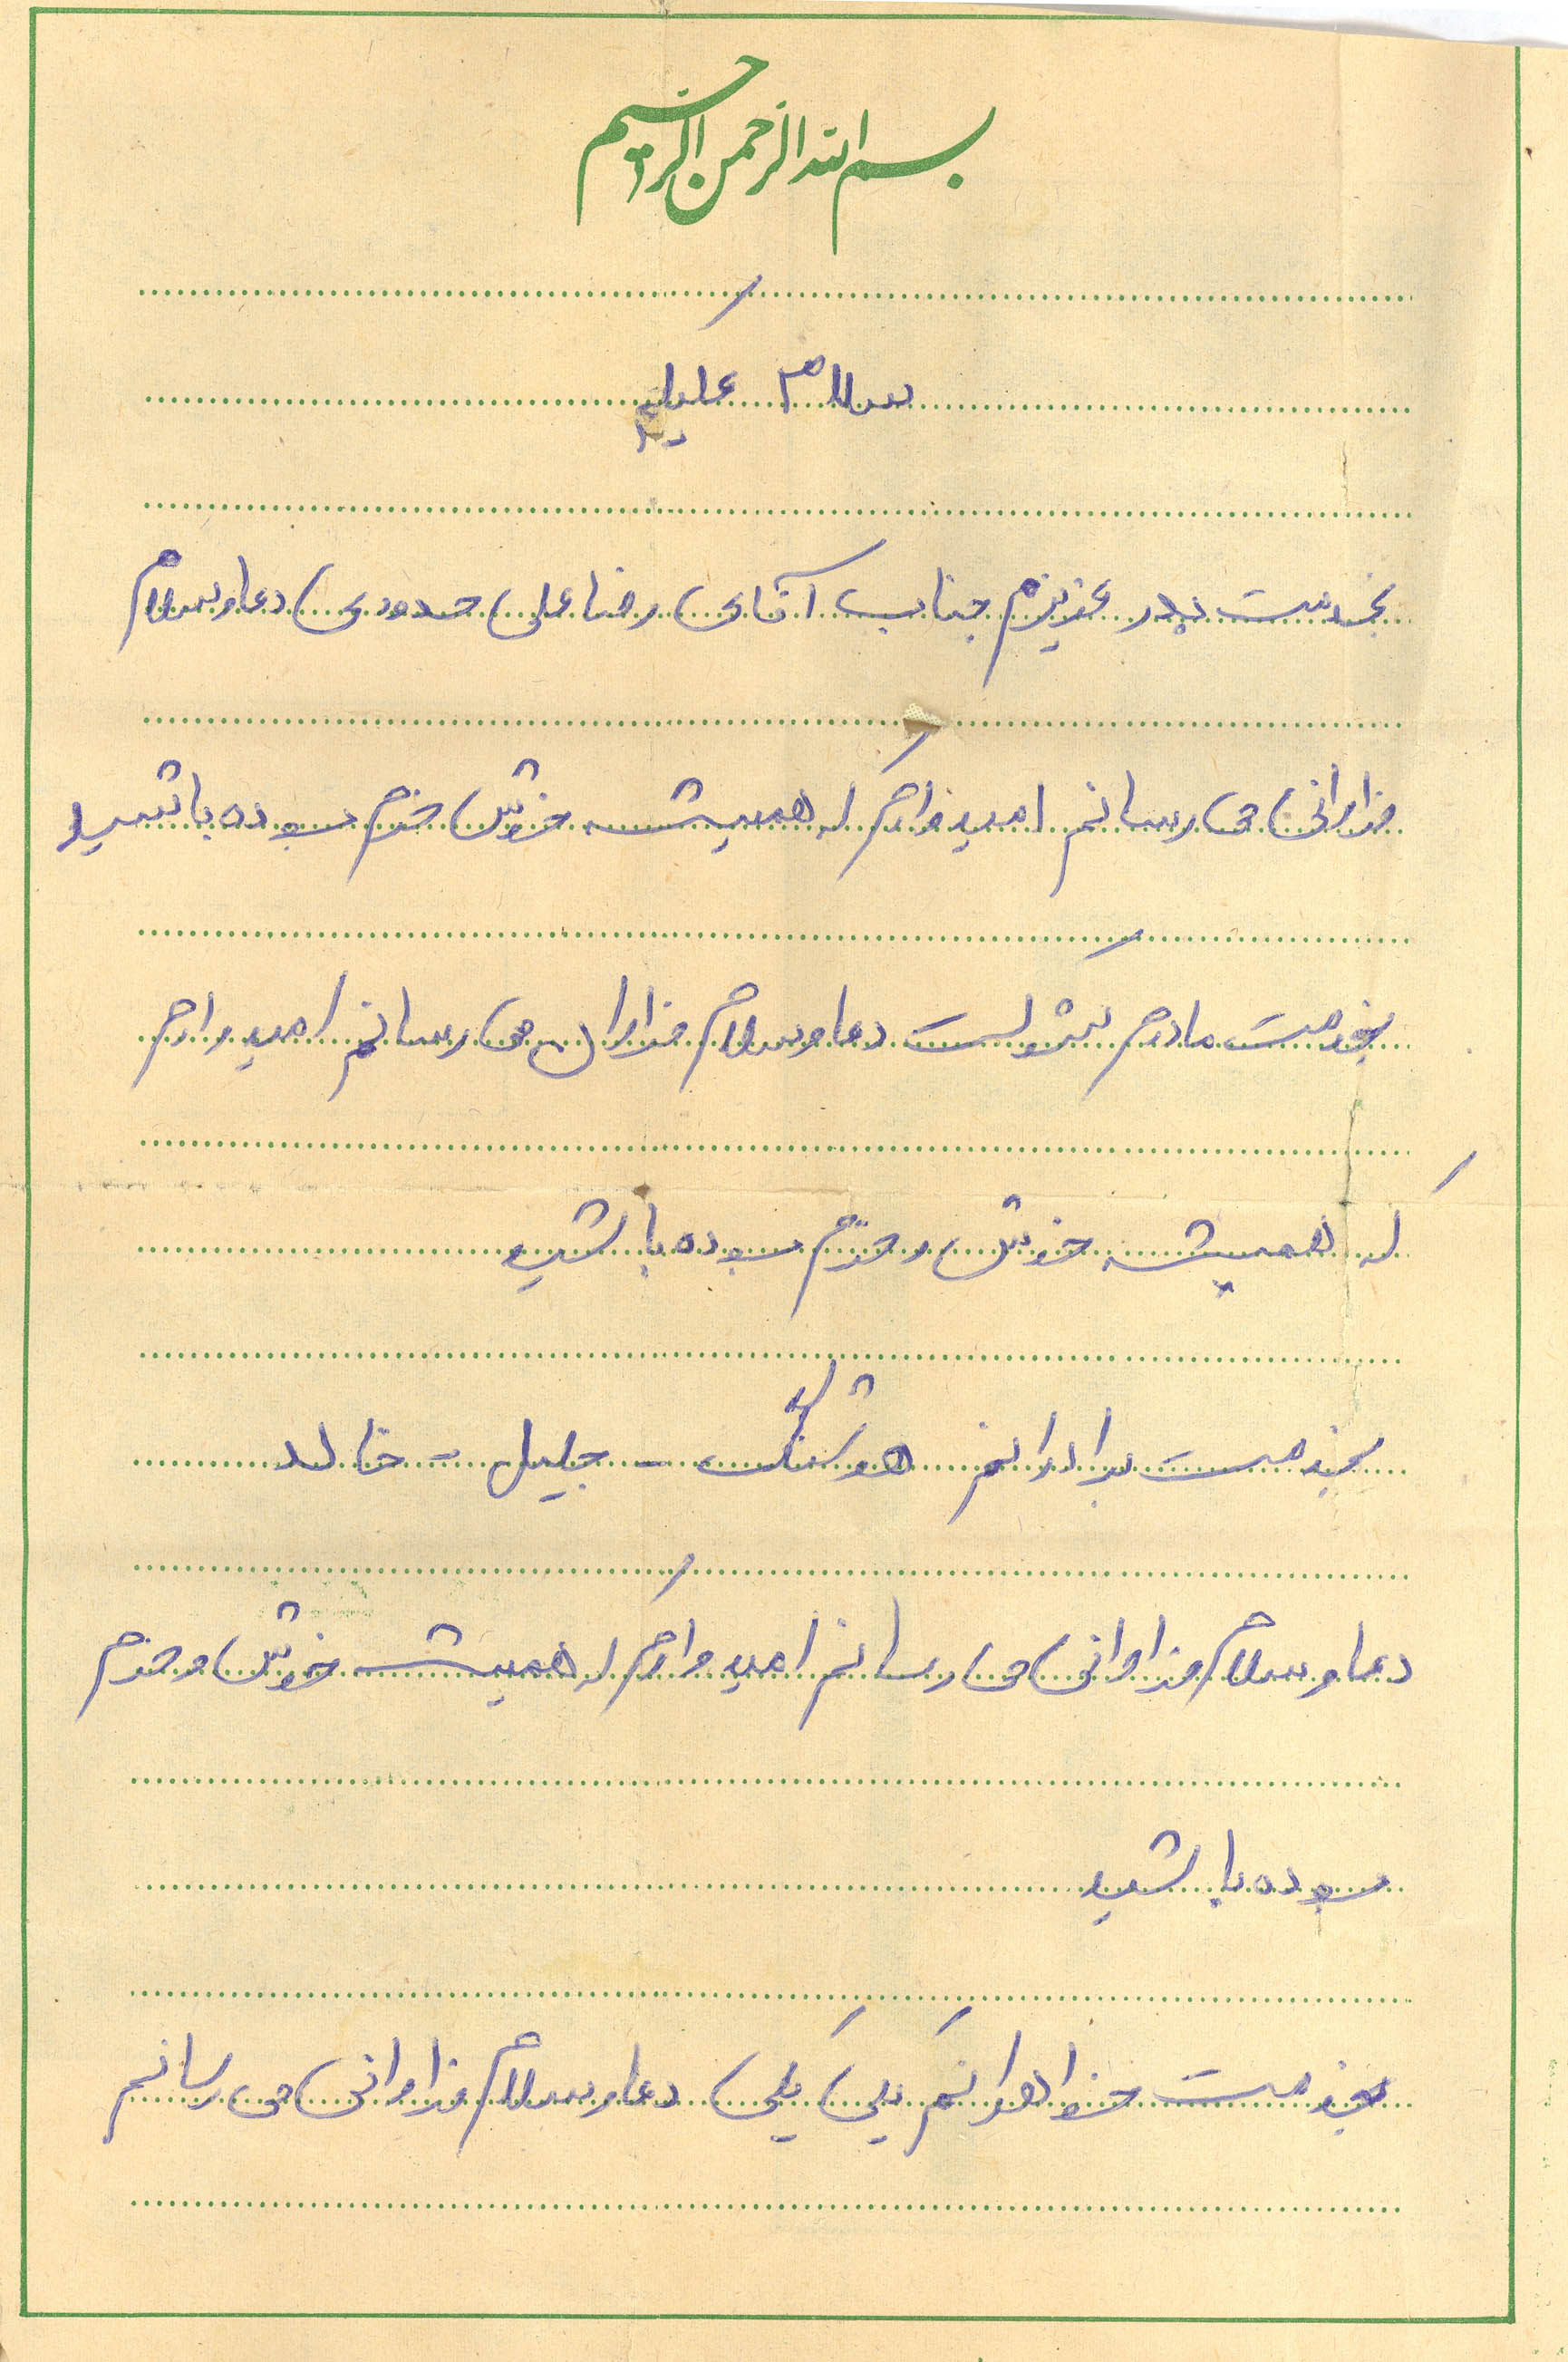 بسم الله الرحمن الرحیم
سلام علیکم
بخدمت پدر عزیزم جناب آقای رضا علی حدودی دعا و سلام
فراوانی می رسانم امیدوارم که همیشه خوش خرم بوده باشید
بخدمت مادرم دعا و سلام فراوان می رسانم امیدوارم
که همیشه خوش و خرم بوده باشید
بخدمت برادرانم هوشنگ - جلیل - خالد
دعا و سلام فراوانی می رسانم امیدوارم که همیشه خوش و خرم
بوده باشید
بخدمت خواهرانم یکی یکی دعا و سلام فراوانی می رسانم